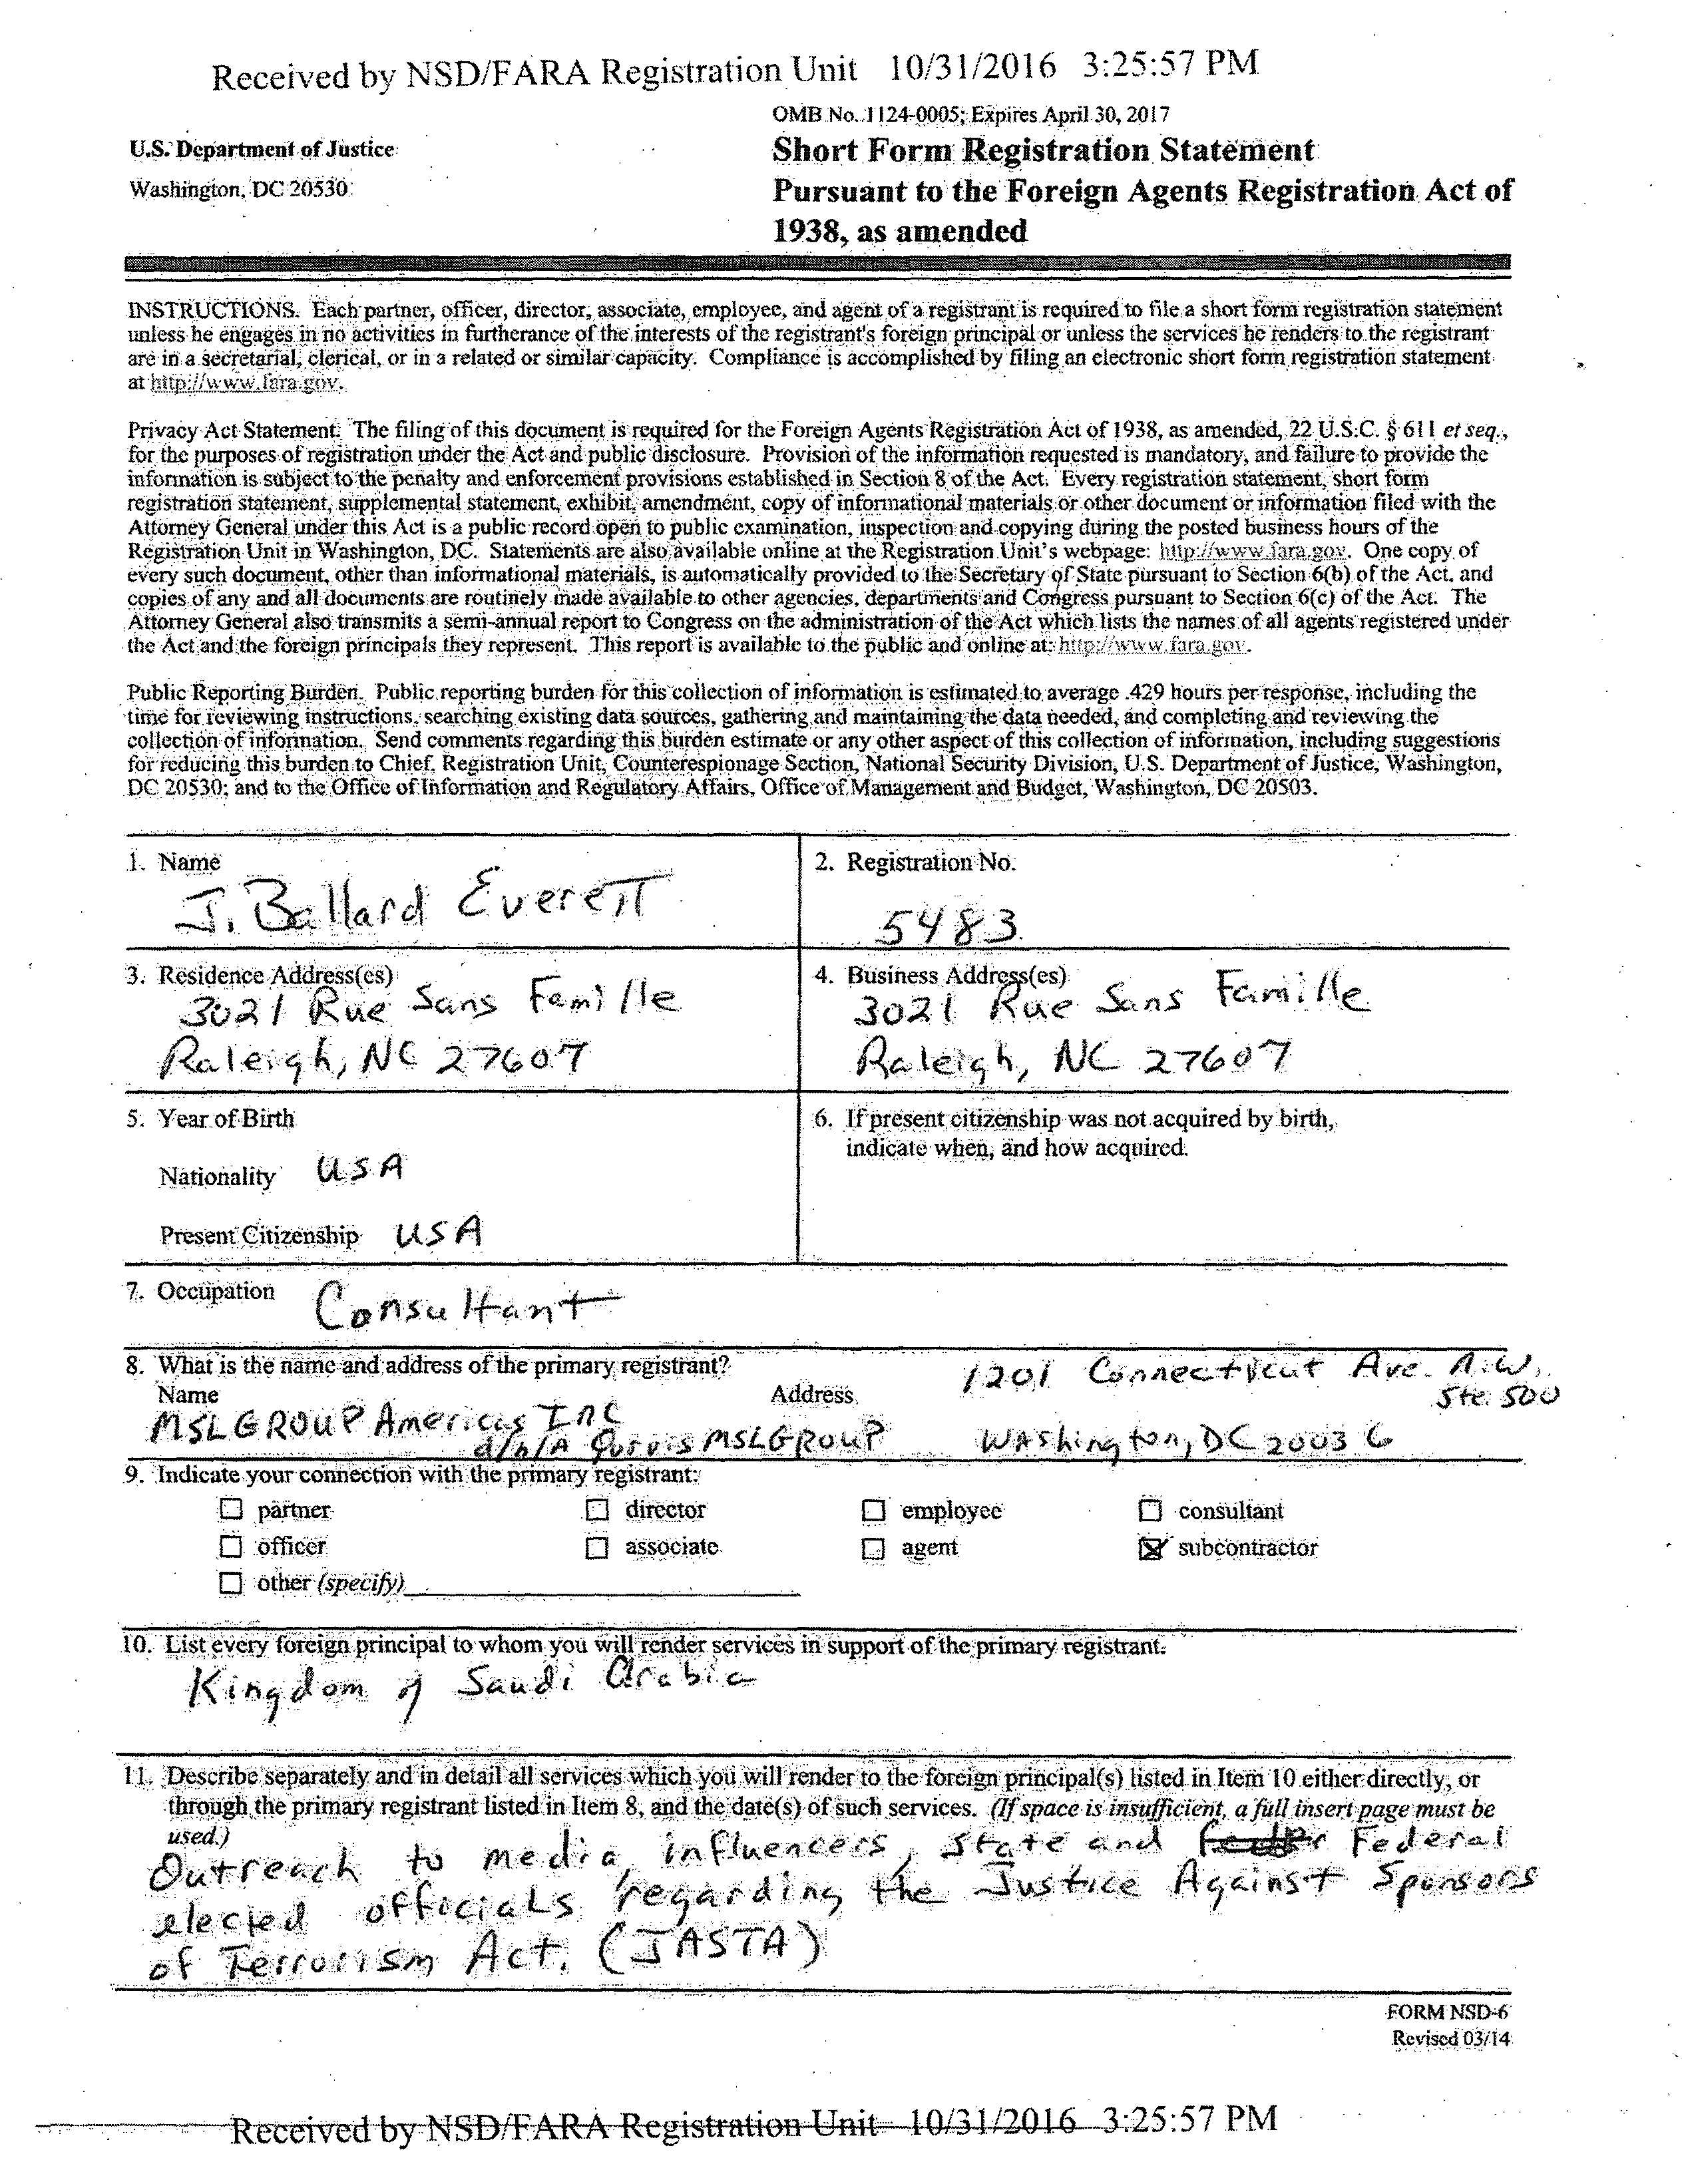 Received by NSD/FARA Registration Unit 10/31/2016 3:25:57 PM
OMB No. 1124-0005; Expires April 30, 2017
U.S. Department of Justice
Washington, DC 20530
Short Form Registration Statement
Pursuant to the Foreign Agents Registration Act of
1938, as amended
INSTRUCTIONS. Each partner, officer, director, associate, employee, and agent of a registrant is required to file a short form registration statement
unless he engages in no activities in furtherance of the interests of the registrant's foreign principal or unless the services he renders to the registrant
are in a secretarial, clerical, or in a related or similar capacity. Compliance is accomplished by filing an electronic short form registration statement
at http://www.fara.gov.
Privacy Act Statement. The filing of this document is required for the Foreign Agents Registration Act of 1938, as amended, 22 U.S.C. § 611 et seq.,
for the purposes of registration under the Act and public disclosure. Provision of the information requested is mandatory, and failure to provide the
information is subject to the penalty and enforcement provisions established in Section 8 of the Act. Every registration statement, short form
registration statement, supplemental statement, exhibit, amendment, copy of informational materials or other document or information filed with the
Attorney General under this Act is a public record open to public examination, inspection and copying during the posted business hours of the
Registration Unit in Washington, DC. Statements are also available online at the Registration Unit's webpage: http://www.fara.gov. One copy of
every such document, other than informational materials, is automatically provided to the Secretary of State pursuant to Section 6(b) of the Act, and
copies of any and all documents are routinely made available to other agencies, departments and Congress pursuant to Section 6(c) of the Act. The
Attorney General also transmits a semi-annual report to Congress on the administration of the Act which lists the names of all agents registered under
the Act and the foreign principals they represent. This report is available to the public and online at: http://www.fara.gov.
Public Reporting Burden. Public reporting burden for this collection of information is estimated to average .429 hours per response, including the
time for reviewing instructions, searching existing data sources, gathering and maintaining the data needed, and completing and reviewing the
collection of information. Send comments regarding this burden estimate or any other aspect of this collection of information, including suggestions
for reducing this burden to Chief, Registration Unit, Counterespionage Section, National Security Division, U.S. Department of Justice, Washington,
DC 20530; and to the Office of Information and Regulatory Affairs, Office of Management and Budget, Washington, DC 20503.
1. Name
J. Ballard Everett
2. Registration No.
5483
3. Residence Address(es)
3021 Rue Sans Famille
Raleigh, NC 27607
4. Business Address(es)
3021 Rue Sans Famille
Raleigh, NC 27607
5. Year of Birth
Nationality USA
Present Citizenship USA
6. If present citizenship was not acquired by birth,
indicate when, and how acquired.
7. Occupation Consultant
8. What is the name and address of the primary registrant?
Name
MSLGROUP Americas Inc
d/b/A Qorvis MSLGROUP
Address
1201 Connecticut Ave. N.W.
Ste. 500
Washington, DC 20036
9. Indicate your connection with the primary registrant:
partner director employee consultant
officer associate agent subcontractor
other (specify)
10. List every foreign principal to whom you will render services in support of the primary registrant.
Kingdom of Saudi Arabia
11. Describe separately and in detail all services which you will render to the foreign principal(s) listed in Item 10 either directly, or
through the primary registrant listed in Item 8, and the date(s) of such services. (If space is insufficient, a full insert page must be
used.)
Outreach to media, influencers, state and Federal
elected officials regarding the Justice Against Sponsors
of Terrorism Act. (JASTA)
FORM NSD-6
Revised 03/14
Received by NSD/FARA Registration Unit 10/31/2016 3:25:57 PM